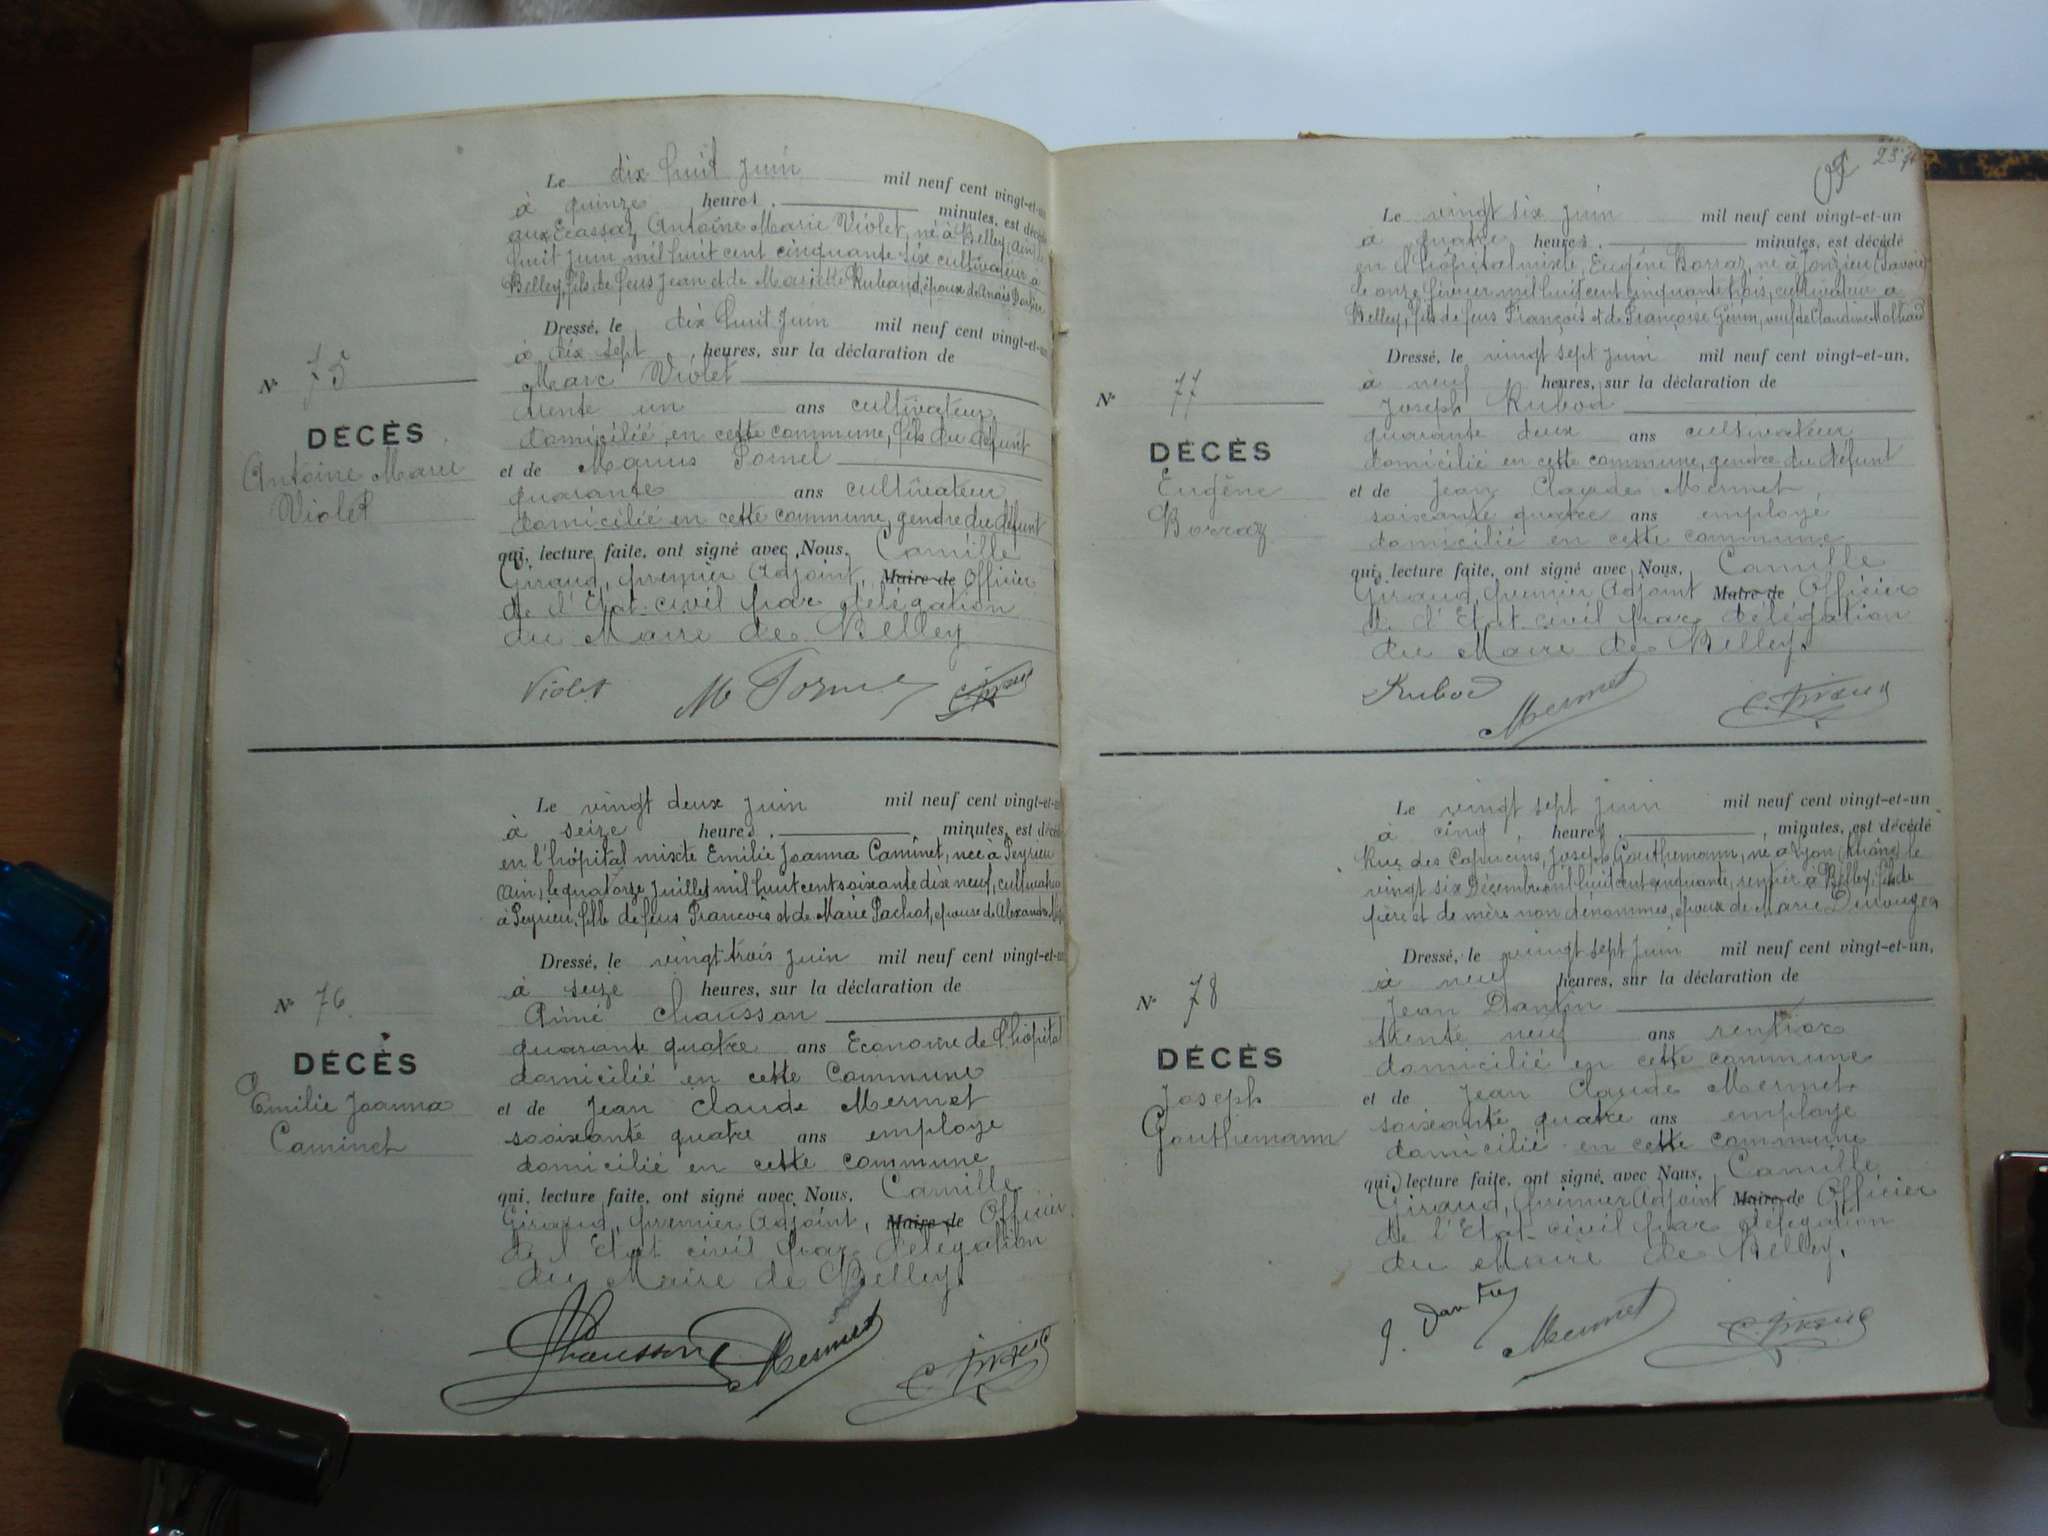 Le dix huit juin mil neuf cent vingt-et-un
à quinze heures, minutes, est décédé
aux Ecassaz Antoine Marie Violet, né à Belley (Ain) le
huit juin mil huit cent cinquante six cultivateur à
Belley, fils de feus Jean et de Mariette Rubaud, époux d'Anaïs
Dressé, le dix huit juin mil neuf cent vingt-et-un
à dix sept heures, sur la déclaration de
Marc Violet
trente un ans cultivateur
domicilié en cette commune, fils du défunt
et de Marius Pornel
quarante ans cultivateur
domicilié en cette commune, gendre du défunt
qui, lecture faite, ont signé avec Nous, Camille
Giraud, premier Adjoint, Maire de Officier
de l'Etat-civil par délégation
du Maire de Belley
N° 75
DÉCÈS
Antoine Marie
Violet
Violet C. Giraud
Le vingt deux juin mil neuf cent vingt-et-un
à seize heures, minutes, est décédé
en l'hôpital mixte Emilie Joanna Caminet, née à Peyrieu
(Ain), le quatorze juillet mil huit cent soixante dix neuf, cultivatrice
à Peyrieu, fille de feus François et de Marie Pachot, épouse de Alexandre
Dressé, le vingt trois juin mil neuf cent vingt-et-un
à seize heures, sur la déclaration de
Aimé Chausson
quarante quatre ans Econome de l'hôpital
domicilié en cette commune
et de Jean Claude Mermet
sooixante quatre ans employé
domicilié en cette commune
qui, lecture faite, ont signé avec Nous, Camille
Giraud, premier Adjoint, Maire de Officier
de l'Etat civil par délégation
du Maire de Belley.
N° 76
DÉCÈS
Emilie Joanna
Caminet
Chausson Mermet C. Giraud
23
Le vingt six juin mil neuf cent vingt-et-un
à quatre heures, minutes, est décédé
en l'hôpital mixte, Eugène Borraz, né à Jonzieu (Savoie)
le onze février mil huit cent cinquante trois, cultivateur à
Belley, fils de feus François et de Françoise Genin, veuf de Claudine
Dressé, le vingt sept juin mil neuf cent vingt-et-un,
à neuf heures, sur la déclaration de
Joseph Rubod
quarante deux ans cultivateur
domicilié en cette commune, gendre du défunt
et de Jean Claude Mermet,
soixante quatre ans employé
domicilié en cette commune
qui, lecture faite, ont signé avec Nous, Camille
Giraud, premier Adjoint Maire de Officier
de l'Etat-civil par délégation
du Maire de Belley.
N° 77
DÉCÈS
Eugène
Borraz
Rubod Mermet C. Giraud
Le vingt sept juin mil neuf cent vingt-et-un
à cinq, heures, minutes, est décédé
Rue des Capucins, Joseph Gouthemann, né à Lyon (Rhône) le
vingt six Décembre mil huit cent cinquante, rentier à Belley, fils de
père et de mère non dénommés, époux de Marie
Dressé, le vingt sept juin mil neuf cent vingt-et-un,
à neuf heures, sur la déclaration de
Jean
trente neuf ans rentier
domicilié en cette commune
et de Jean Claude Mermet
soixante quatre ans employé
domicilié en cette commune
qui, lecture faite, ont signé avec Nous, Camille
Giraud, premier Adjoint Maire de Officier
de l'Etat-civil par délégation
du Maire de Belley.
N° 78
DÉCÈS
Joseph
Gouthemann
Mermet C. Giraud